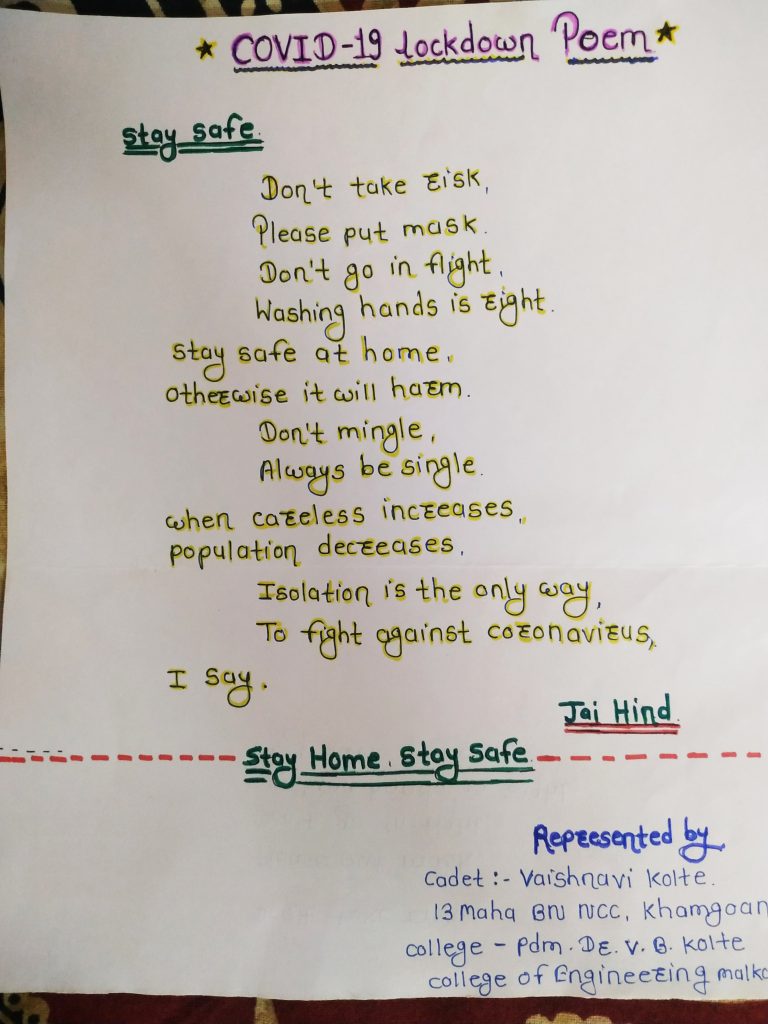 ★ COVID-19 lockdown Poem ★
Stay safe.
Don't take risk,
Please put mask.
Don't go in flight,
Washing hands is right.
Stay safe at home,
otherwise it will harm.
Don't mingle,
Always be single.
when careless increases,
population decreases,
Isolation is the only way,
To fight against coronavirus,
I say.
Jai Hind.
Stay Home. Stay Safe.
Represented by
Cadet :- Vaishnavi Kolte.
13 Maha BN NCC, Khamgoan
college - Pdm. Dr. V. B. Kolte
college of Engineering malka